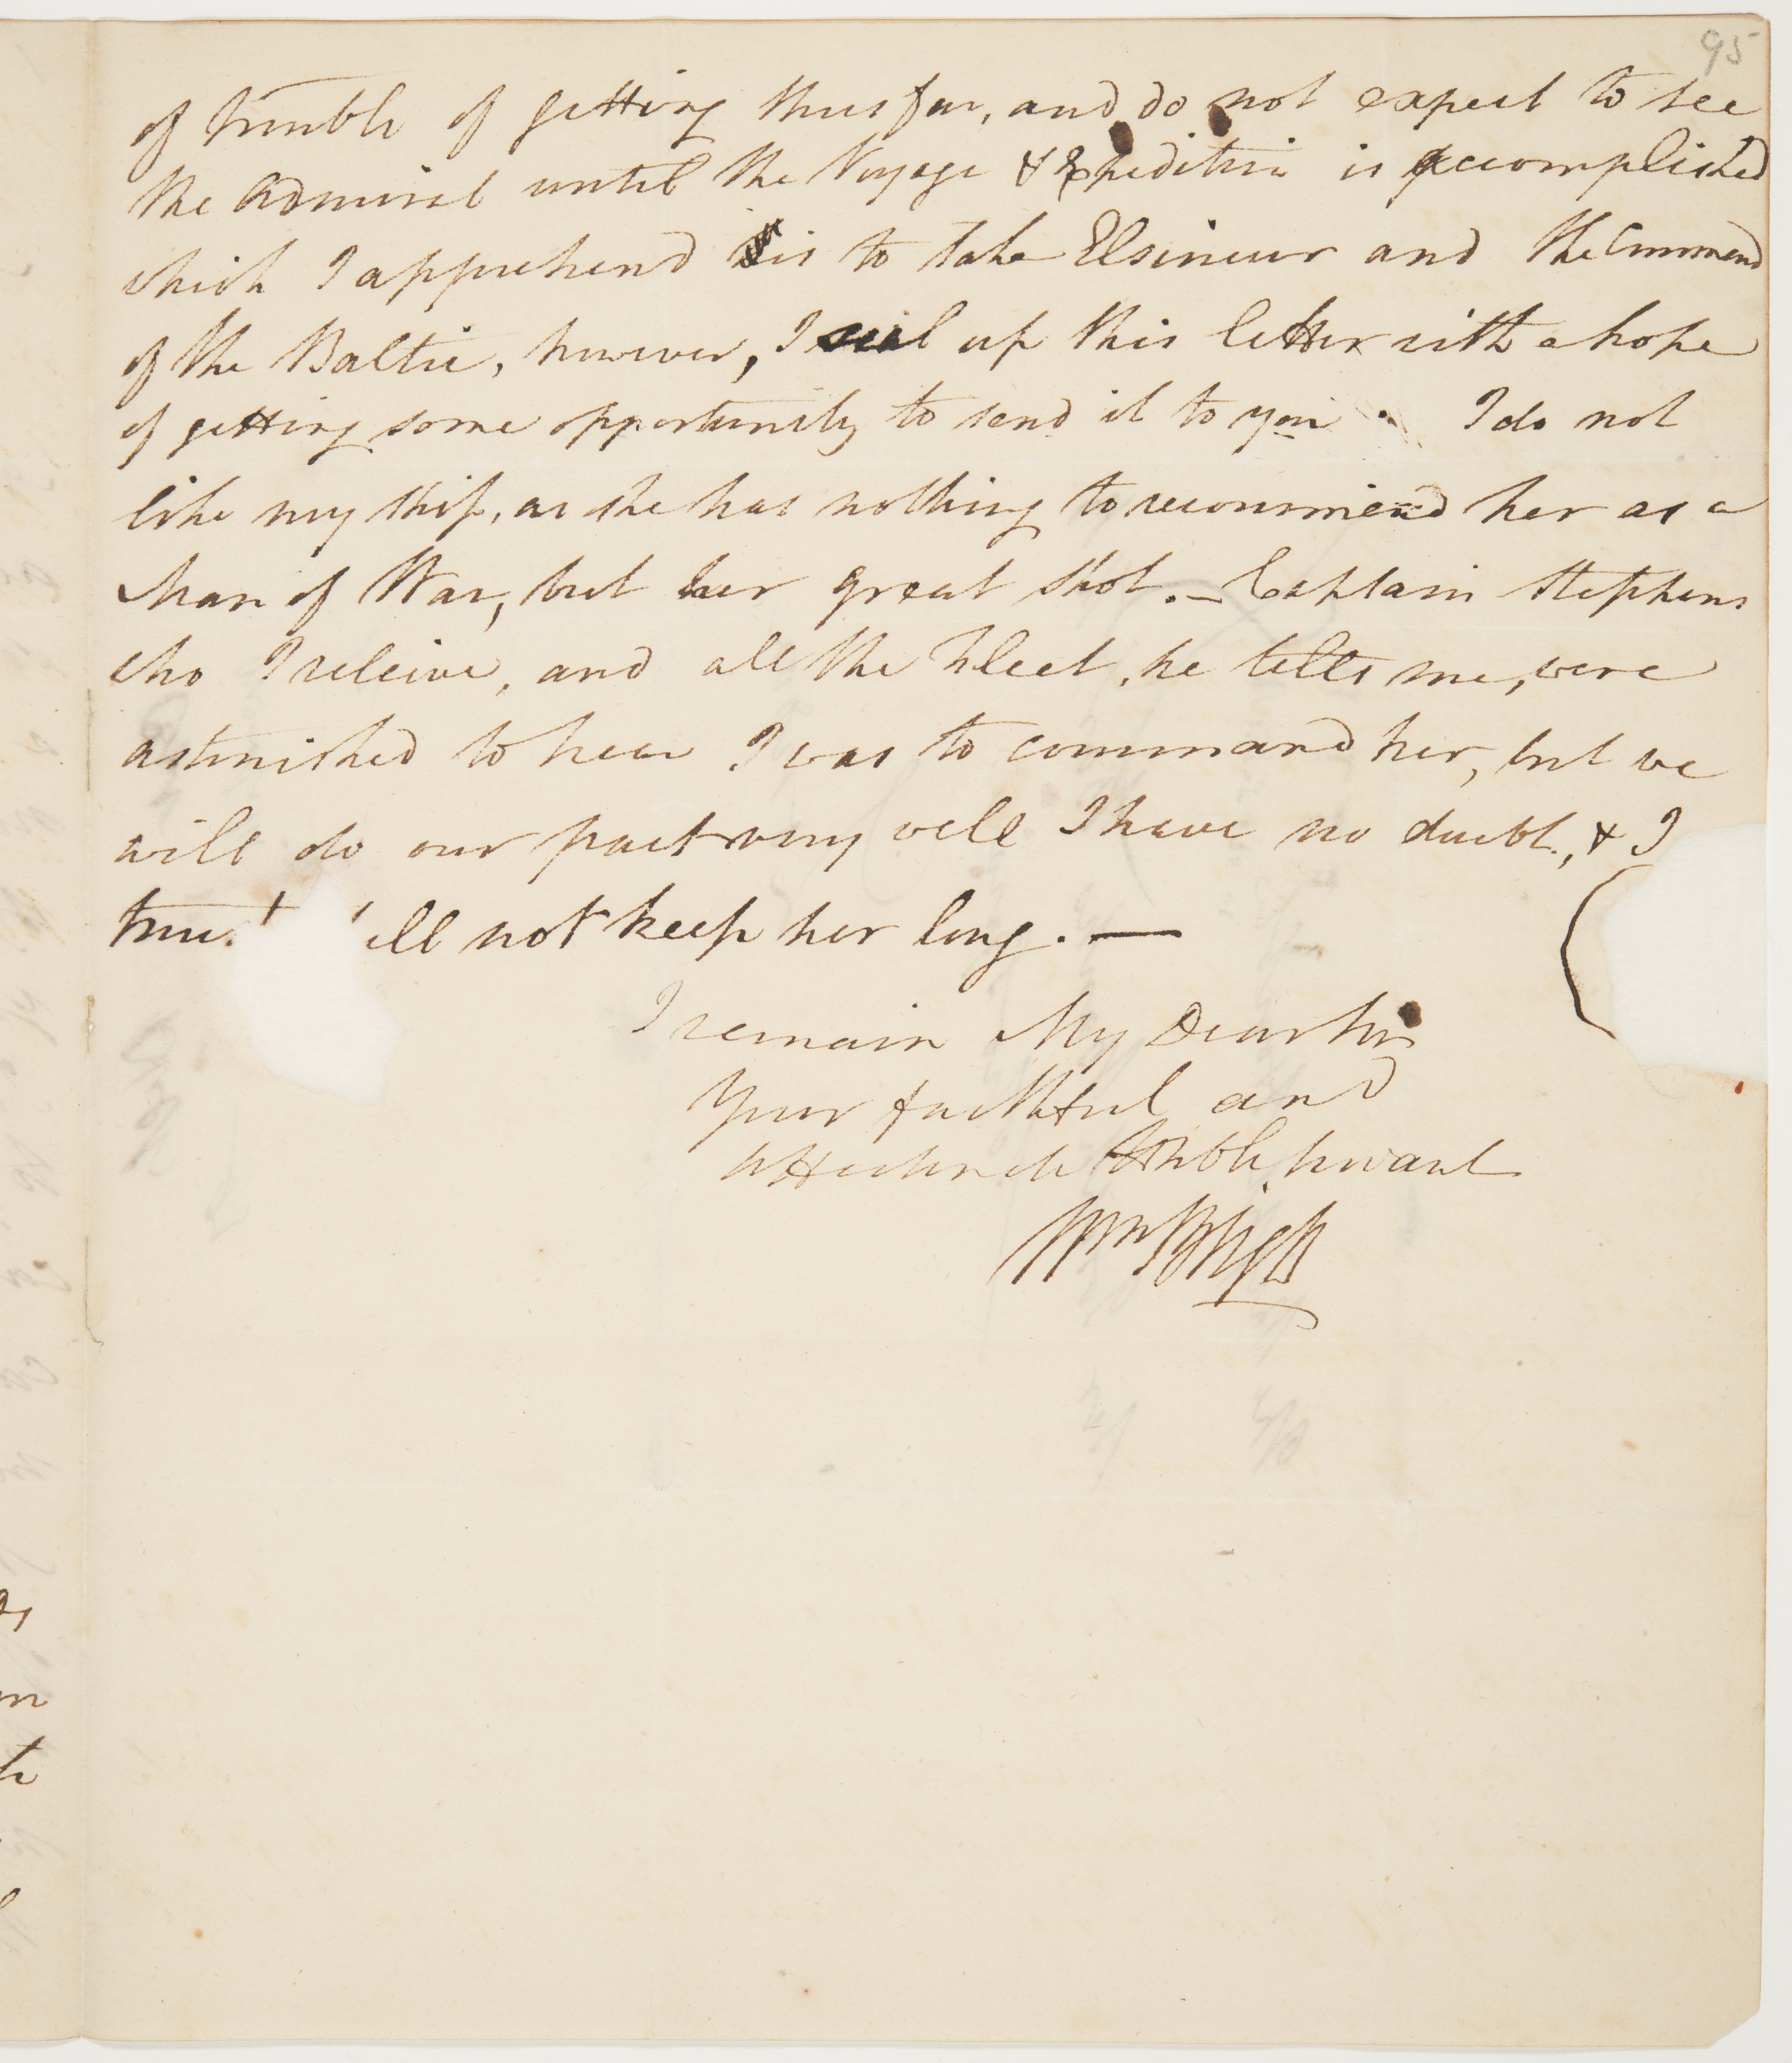 95
of trouble of getting thus far, and do not expect to see
the Admiral until the Voyage & Expedition is accomplished
which I apprehend is to take Elsineur and the Command
of the Baltic, however, I seal up this letter with a hope
of getting some opportunity to send it to you. I do not
like my Ship, as she has nothing to recommend her as a
Man of War, but her great Shot. — Captain Stephens
who I releive, and all the Fleet, he tells me, were
astonished to hear I was to command her, but we
will do our part very well I have no doubt, & I
trust ill not keep her long. —
I remain My Dear Sir
Your faithful and
Humble Servant
Wm Bligh